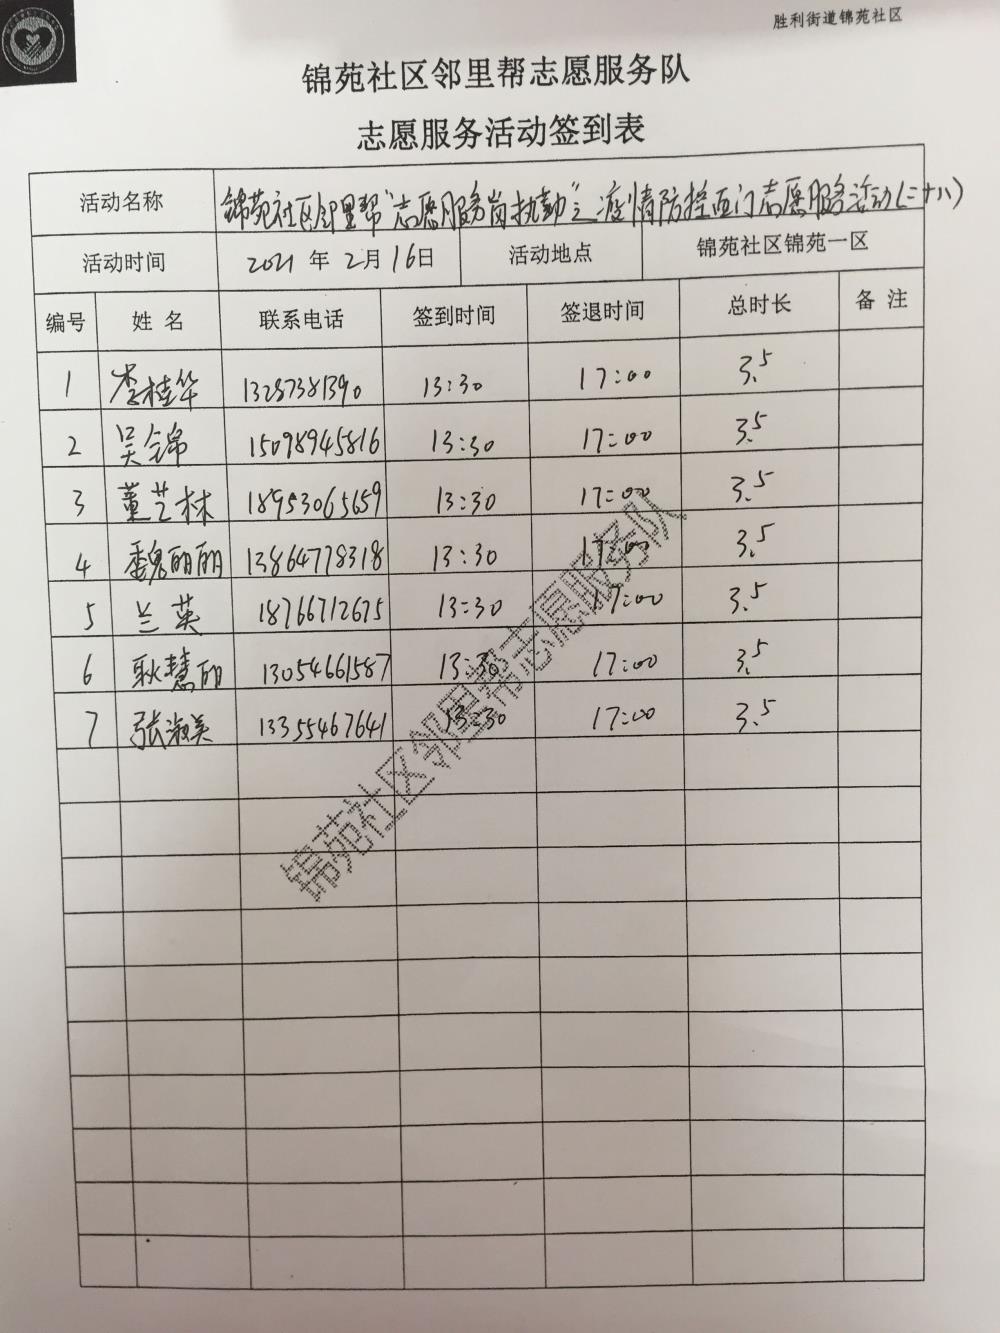 胜利街道锦苑社区
锦苑社区邻里帮志愿服务队
志愿服务活动签到表
活动名称 锦苑社区邻里帮“志愿服务岗执勤”之疫情防控西门志愿服务活动(二十八)
活动时间 2021 年 2月 16日 活动地点 锦苑社区锦苑一区
编号 姓 名 联系电话 签到时间 签退时间 总时长 备 注
1 李桂华 13287381390 13:30 17:00 3.5
2 吴锦 15098945816 13:30 17:00 3.5
3 董艺林 18953065659 13:30 17:00 3.5
4 魏丽丽 13864778318 13:30 17:00 3.5
5 兰英 18766712675 13:30 17:00 3.5
6 耿慧丽 13054661587 13:30 17:00 3.5
7 张淑美 13355467641 13:30 17:00 3.5
锦苑社区邻里帮志愿服务队